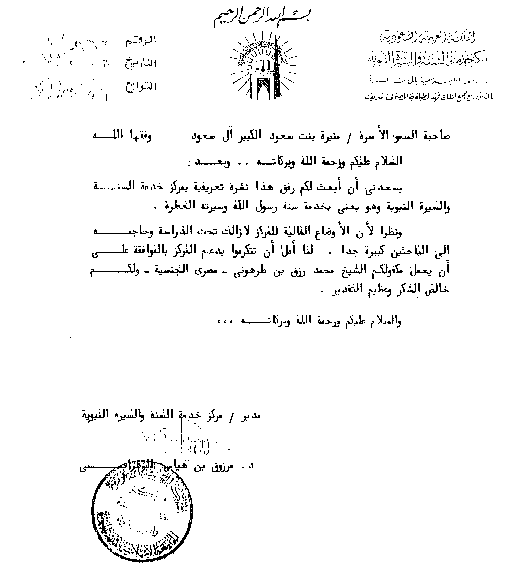 بسم الله الرحمن الرحيم
المملكة العربية السعودية
مركز خدمة السنة والسيرة النبوية
الرقم
التاريخ
التوابع
صاحبة السمو الأميرة / منيرة بنت سعود الكبير آل سعود وفقها اللـــه
السلام عليكم ورحمة الله وبركاتــه .. وبعــد :
يسعدني أن أبعث لكم رفق هذا نشرة تعريفية بمركز خدمة السنـــة
والسيرة النبوية وهو يعنى بخدمة سنة رسول الله وسيرته العطرة .
ونظرا لأن الأوضاع المالية للمركز لازالت تحت الدراسة وحاجتــه
الى الباحثين كبيرة جدا . لذا آمل أن تتكرموا بدعم المركز بالموافقة علــى
أن يعمل مكفولكم الشيخ محمد رزق بن طرهوني ـ مصرى الجنسية ـ ولكــم
خالص الشكر وعظيم التقدير .
والسلام عليكم ورحمة الله وبركاتــــه ...
مدير / مركز خدمة السنة والسيرة النبوية
د. مرزوق بن هياس الزهرانـــي